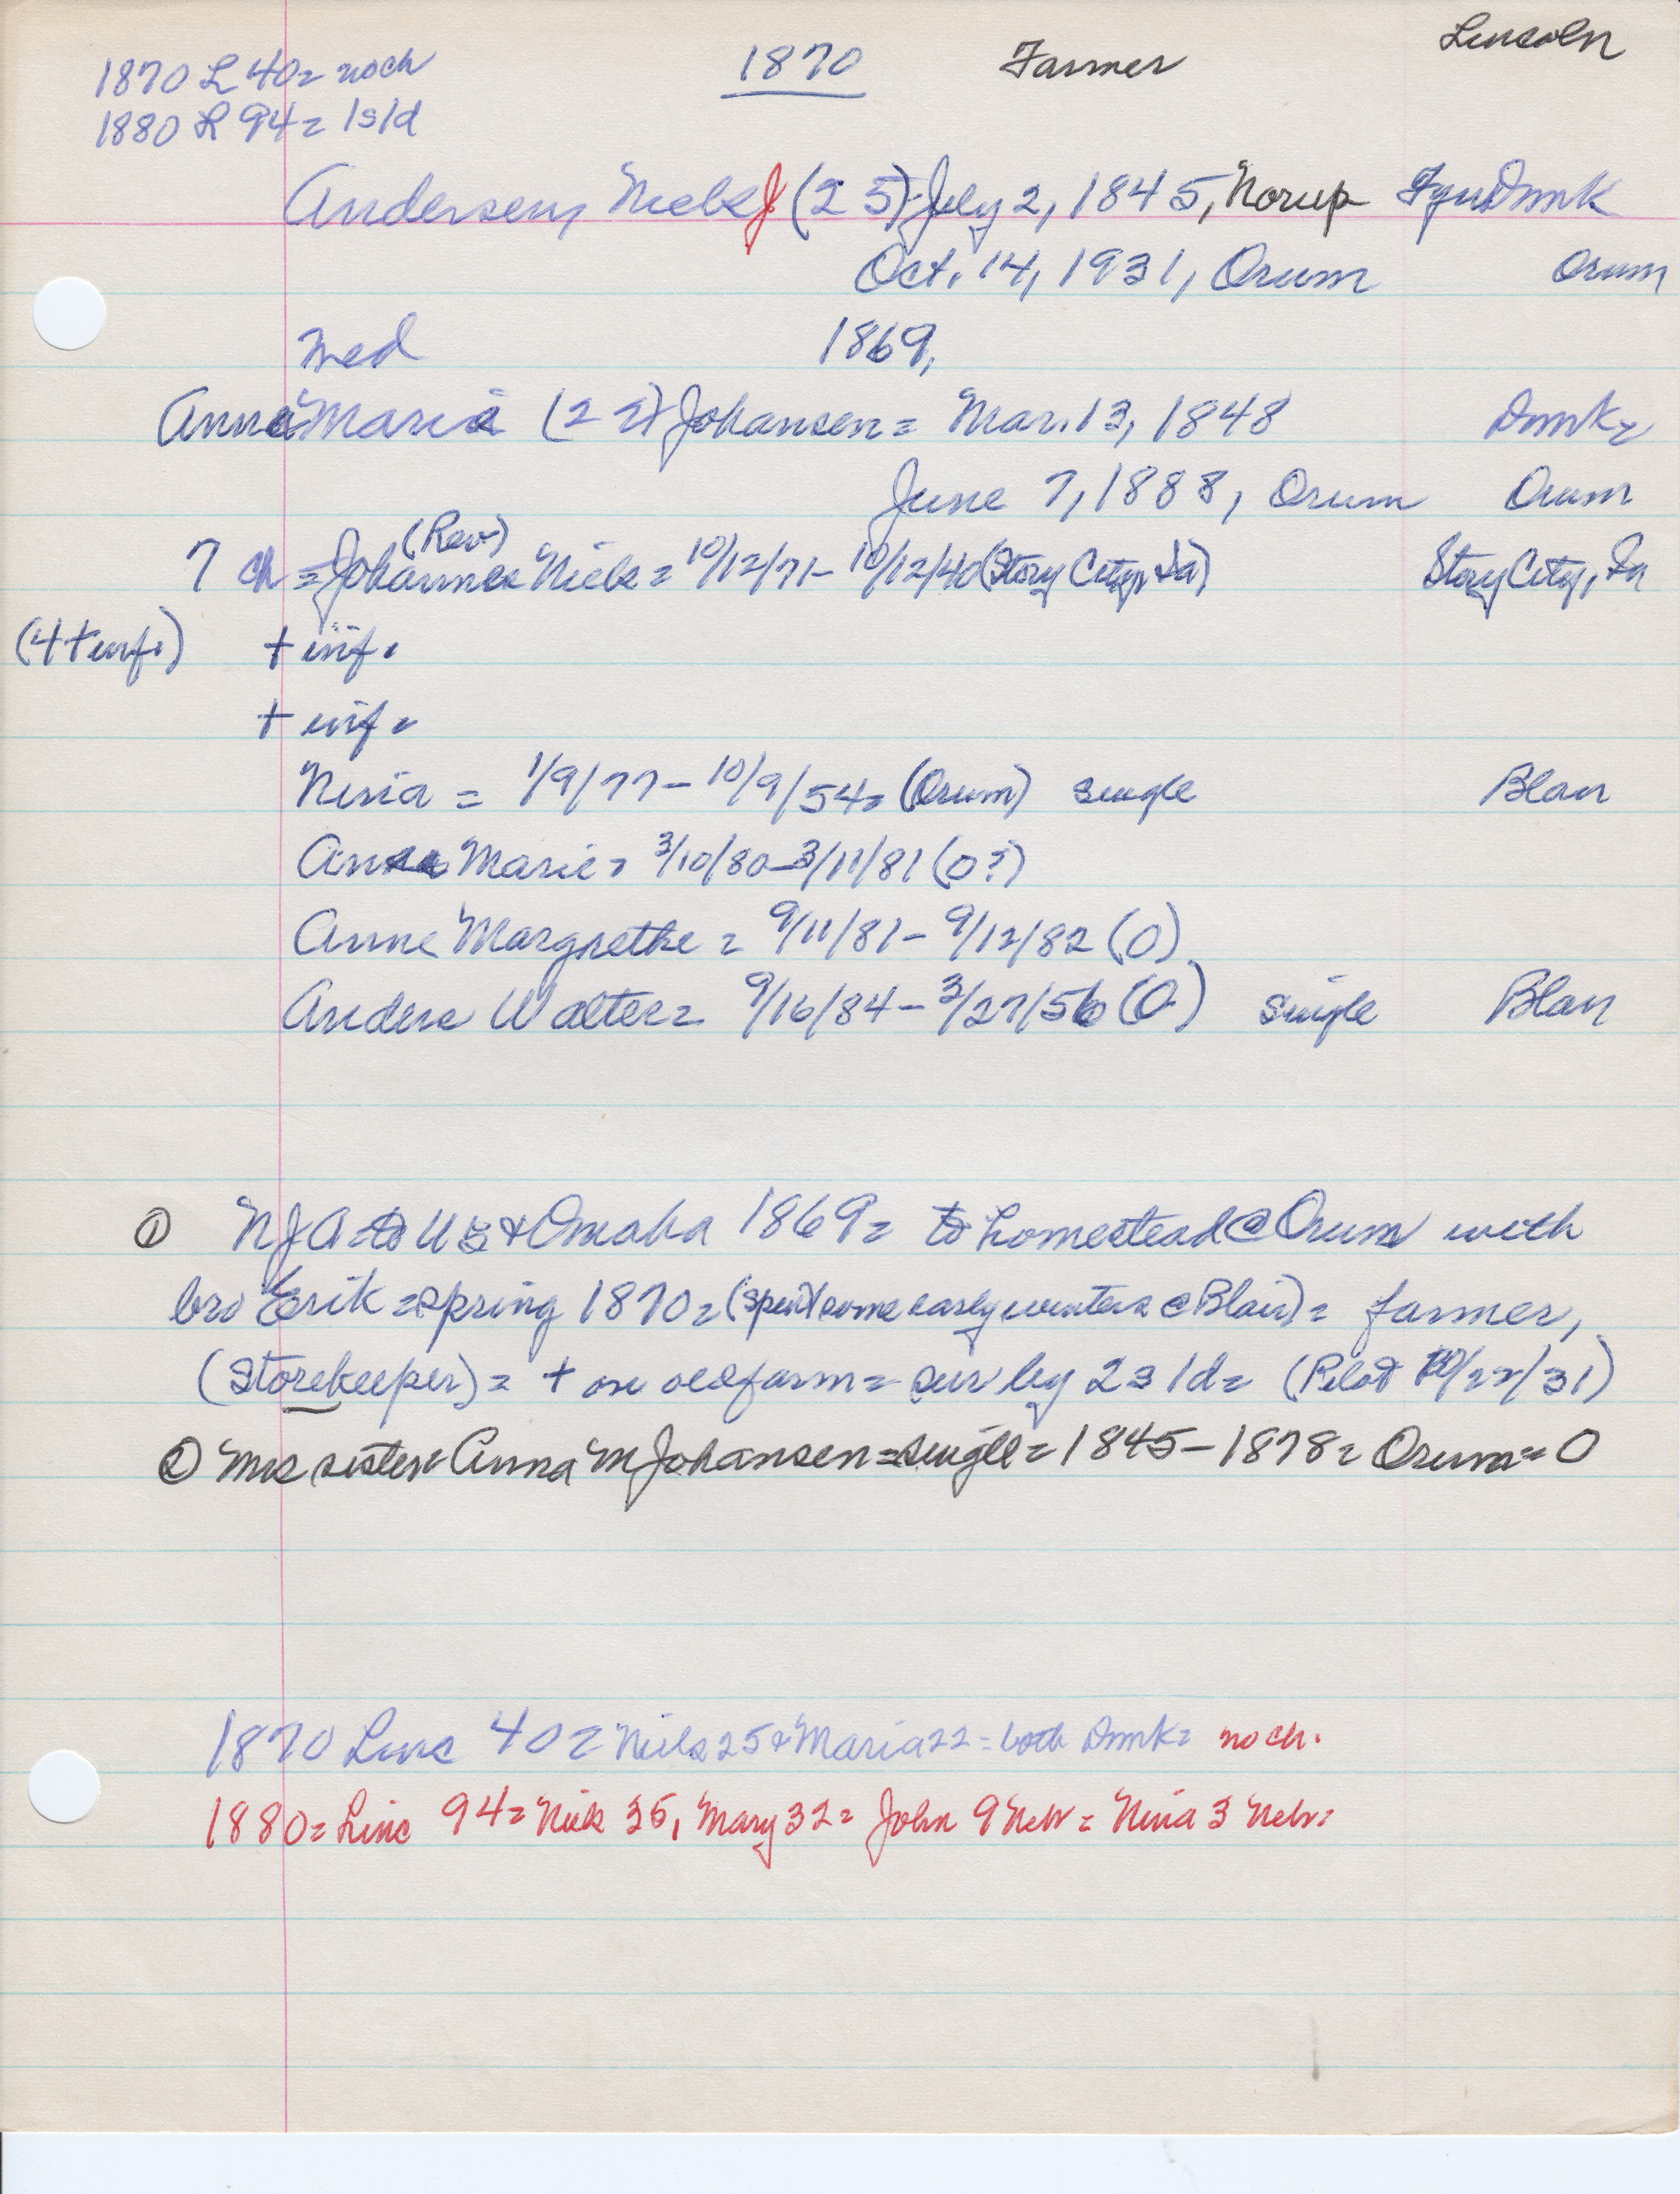 1870 Farmer Lincoln
1870 L 40= noch
1880 L 94= 1s1d
Andersen, Niels J (25) July 2, 1845, Norup Fyn Dnmk
Oct. 14, 1931, Orum Orum
med 1869,
Anna Maria (22) Johansen = Mar. 13, 1848 Dnmk=
June 7, 1888, Orum Orum
(Rev)
7 ch = Johannes Niels = 10/12/71 - 10/12/40 (Story City, Ia) Story City, Ia
(4 + inf.) + inf.
+ inf =
Ninia = 1/9/77 - 10/9/54= (Orum) single Blair
Anna Marie= 3/10/80 - 3/11/81 (O?)
Anne Margrethe = 9/11/81 - 9/12/82 (O)
Anders Walter= 9/16/84 - 3/27/56 (O) single Blair
① NJA= to US & Omaha 1869= to homestead @ Orum with
bro Erik = spring 1870= (spent some early winters @ Blair) = farmer,
(Storekeeper) = + on old farm = sur by 2s 1d= (Pilot 10/22/31)
② Mrs sister= Anna M Johansen = single = 1845 - 1878= Orum = O
1870 Linc 40= Niels 25 & Maria 22 = both Dnmk= no ch.
1880= Linc 94= Nick 35, Mary 32= John 9 Neb = Nina 3 Neb=